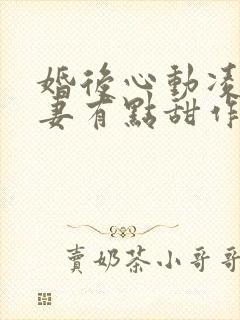 婚後心動凌
妻有點甜作
賣奶茶小哥哥